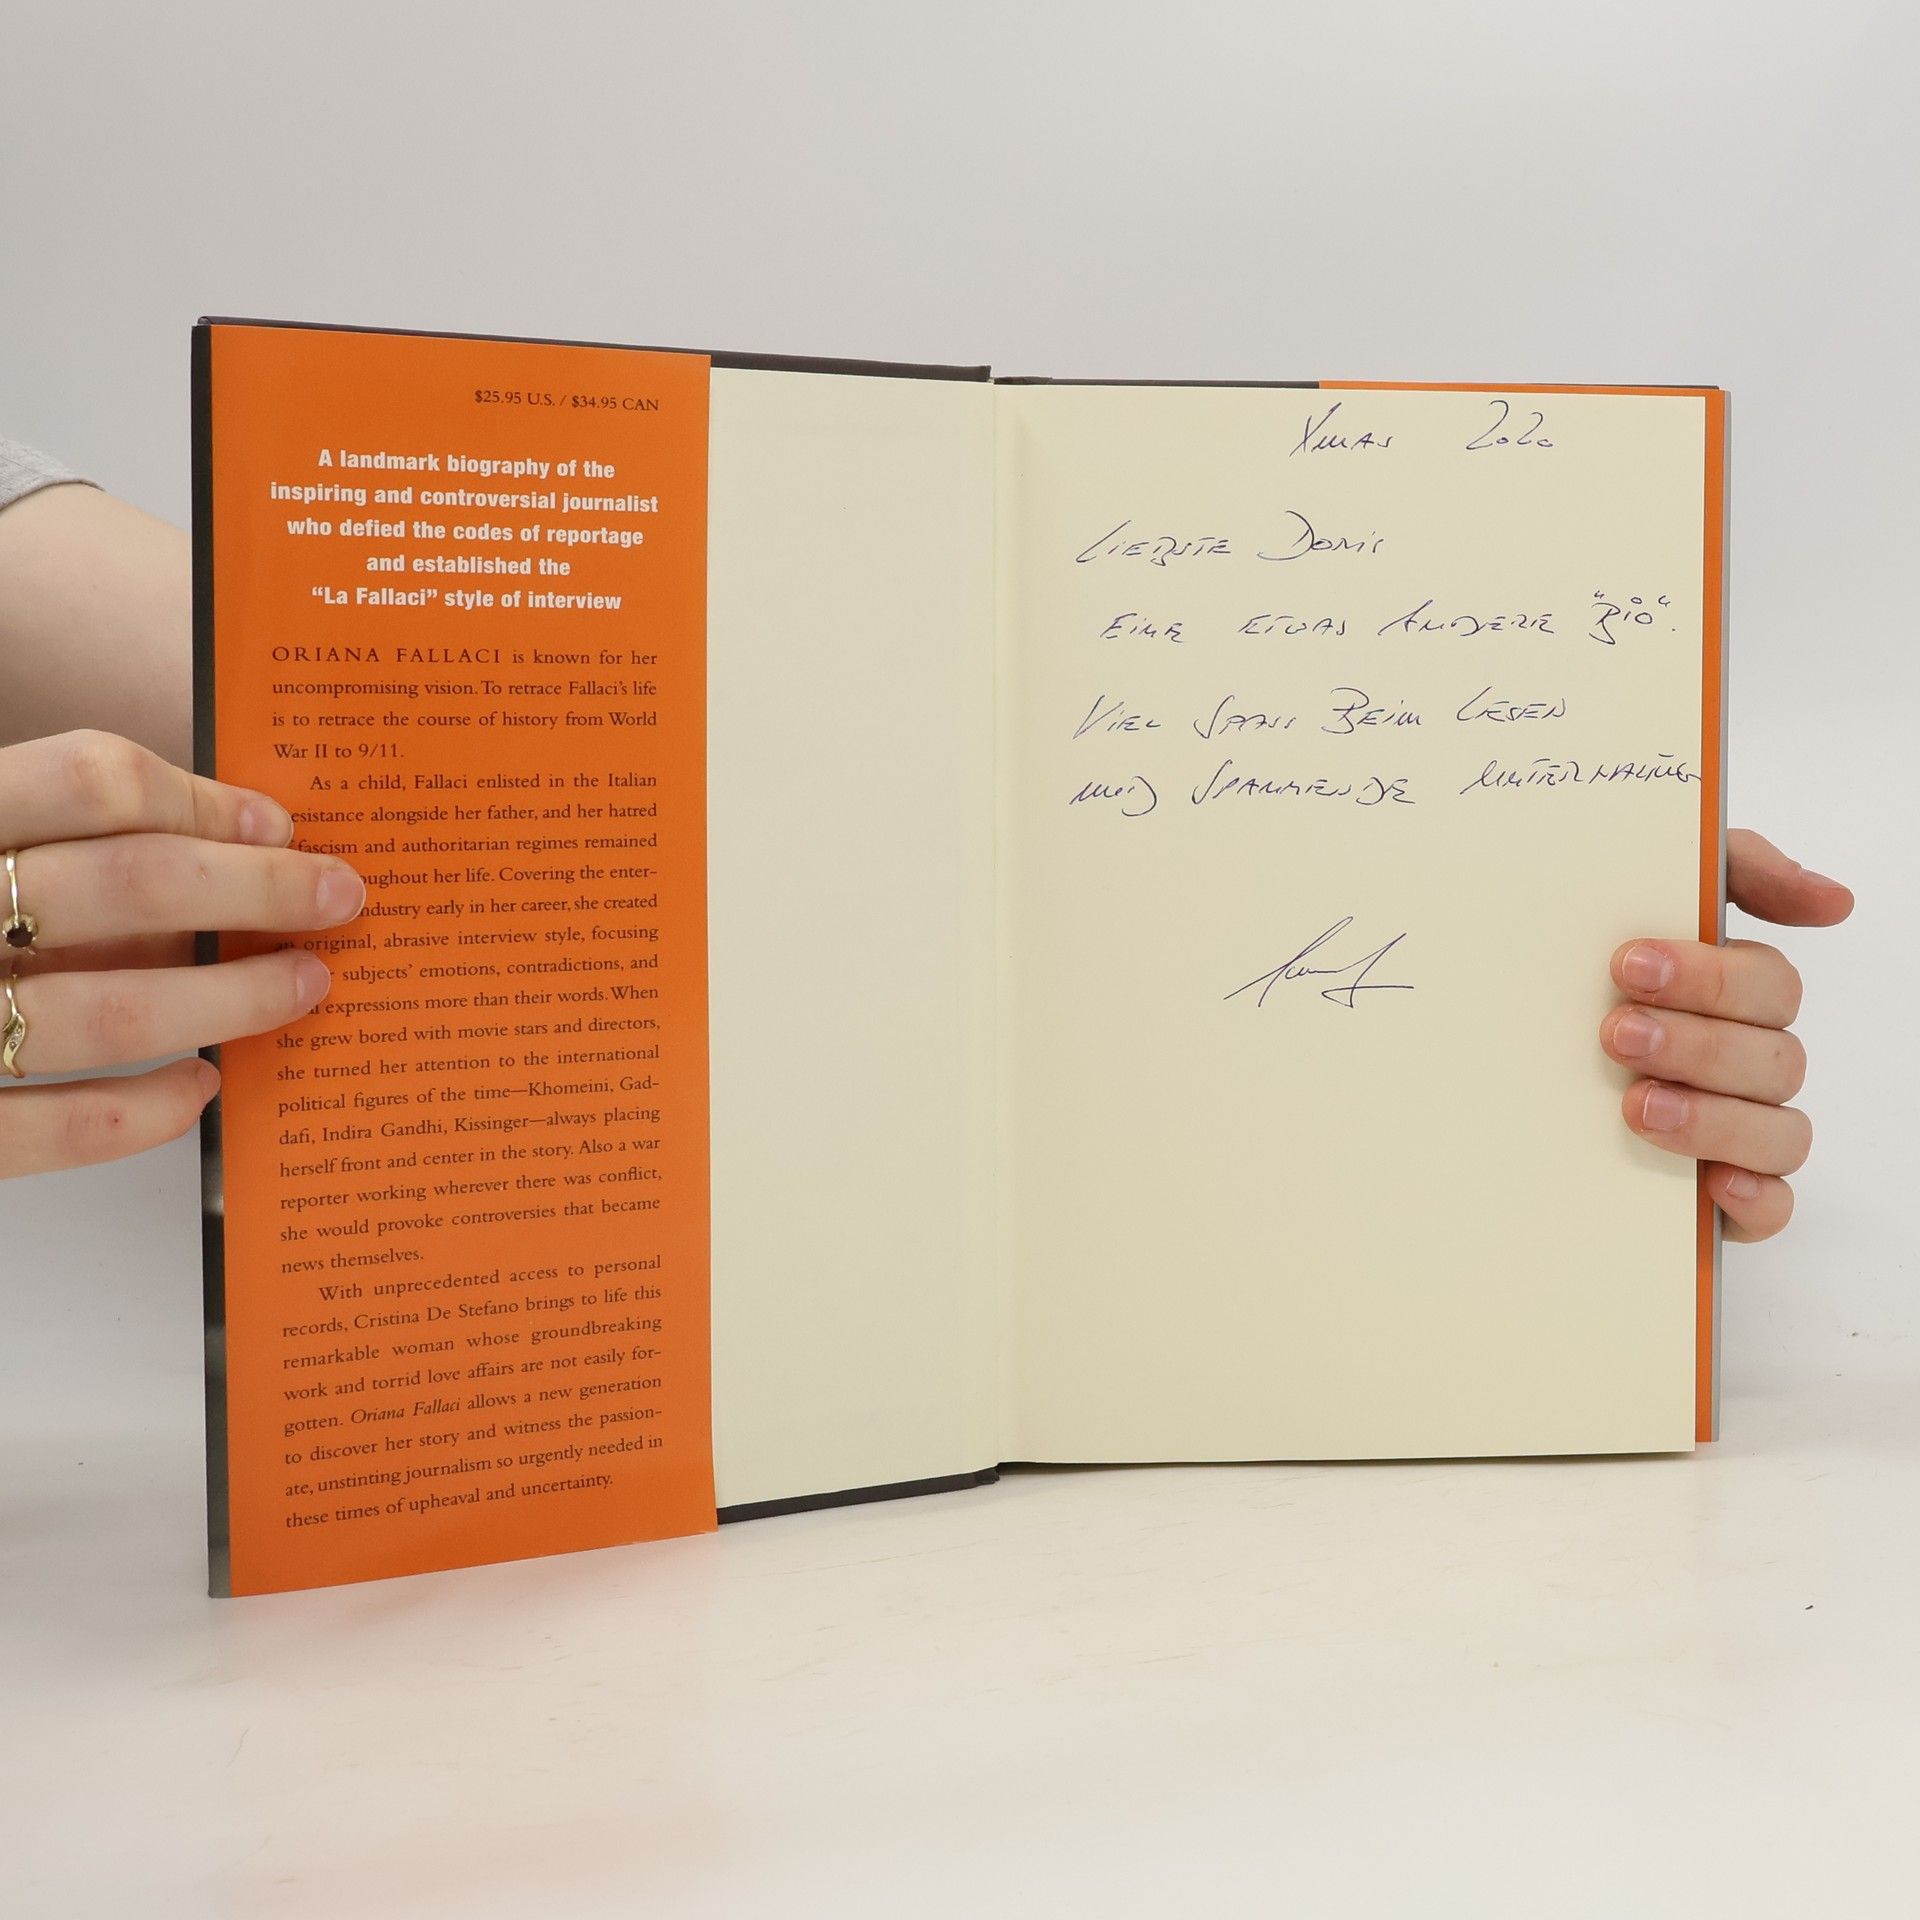 $25.95 U.S. / $34.95 CAN
A landmark biography of the
inspiring and controversial journalist
who defied the codes of reportage
and established the
“La Fallaci” style of interview
ORIANA FALLACI is known for her
uncompromising vision. To retrace Fallaci’s life
is to retrace the course of history from World
War II to 9/11.
As a child, Fallaci enlisted in the Italian
esistance alongside her father, and her hatred
fascism and authoritarian regimes remained
oughout her life. Covering the enter-
ndustry early in her career, she created
an original, abrasive interview style, focusing
subjects’ emotions, contradictions, and
expressions more than their words. When
she grew bored with movie stars and directors,
she turned her attention to the international
political figures of the time—Khomeini, Gad-
dafi, Indira Gandhi, Kissinger—always placing
herself front and center in the story. Also a war
reporter working wherever there was conflict,
she would provoke controversies that became
news themselves.
With unprecedented access to personal
records, Cristina De Stefano brings to life this
remarkable woman whose groundbreaking
work and torrid love affairs are not easily for-
gotten. Oriana Fallaci allows a new generation
to discover her story and witness the passion-
ate, unstinting journalism so urgently needed in
these times of upheaval and uncertainty.
Xmas 2020
Liebste Doris
Eine etwas andere "Bio".
Viel Spass beim Lesen
und spannende Unterhaltung